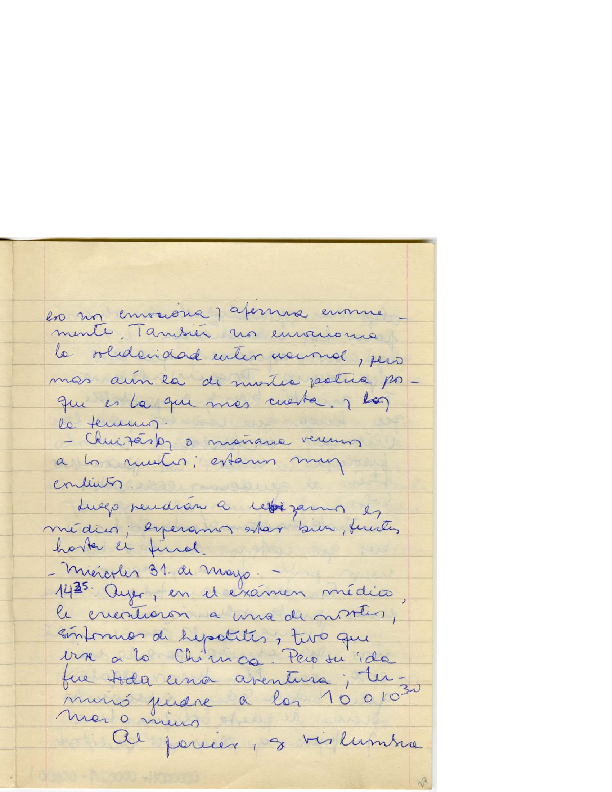 eso nos emociona y afirma enorme-
mente. También nos emociona
la solidaridad internacional, pero
mas aún la de nuestra patria por-
que es la que mas cuesta. y hoy
la tenemos.
- Quizás hoy o mañana veamos
a los nuestros; estamos muy
contentos
Luego vendrán a los
médicos, esperamos estar bien, fuertes
hasta el final.
- Miércoles 31 de Mayo. -
14 35. Ayer, en el exámen médico,
le encontraron a una de nosotras,
síntomas de hepatitis, tuvo que
irse a la Clínica. Pero su ida
fue toda una aventura; ter-
minó yendose a las 10 o 10 30
mas o menos
Al parecer, se vislumbra